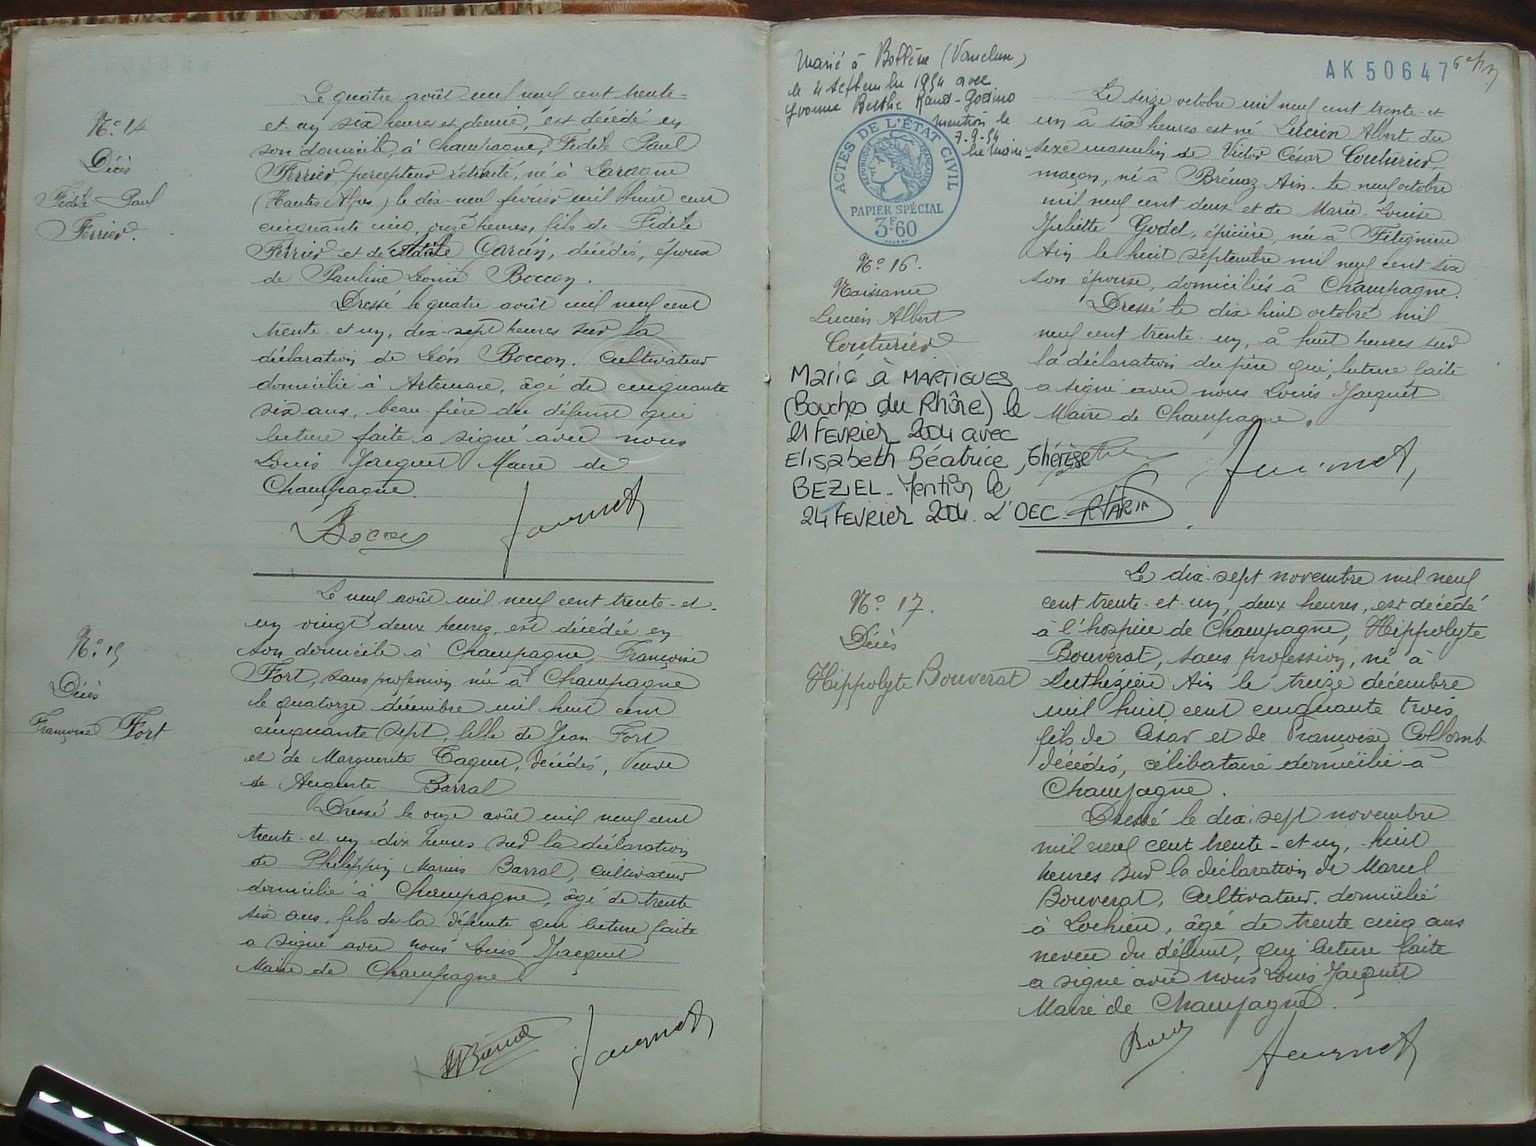 N° 14
Décès
Fidèle Paul
Ferrier.
Le quatre août mil neuf cent trente-
et-un six heures et demie, est décédé en
son domicile, à Champagne, Fidèle Paul
Ferrier, percepteur retraité, né à Laragne
(Hautes Alpes) le dix neuf février mil huit cent
cinquante cinq, onze heures, fils de Fidèle
Ferrier et de Carcin, décédés, époux
de Pauline Léonie Boccon.
Dressé le quatre août mil neuf cent
trente et un, dix sept heures sur la
déclaration de Léon Boccon, cultivateur
domicilié à Artemare, âgé de cinquante
six ans, beau-frère du défunt qui
lecture faite a signé avec nous
Louis Jacquet Maire de
Champagne.
Boccon Jacquet
N° 15
Décès
Françoise Fort
Le neuf août mil neuf cent trente-et-
un vingt deux heures, est décédée en
son domicile à Champagne Françoise
Fort, sans profession née à Champagne
le quatorze décembre mil huit cent
cinquante sept, fille de Jean Fort
et de Marguerite Taquet, décédés, Veuve
de Auguste Barral
Dressé le onze août mil neuf cent
trente et un dix heures sur la déclaration
de Philippin Marius Barral, cultivateur
domicilié à Champagne, âgé de trente
six ans, fils de la défunte qui lecture faite
a signé avec nous Louis Jacquet
Maire de Champagne
Barral Jacquet
Marié à Bollène (Vaucluse)
le 4 septembre 1954 avec
Yvonne Berthe Raud-Godino
mention le
7.9.54
le maire
ACTES DE L'ÉTAT CIVIL
PAPIER SPÉCIAL
3F60
AK 50647
N° 16.
Naissance
Lucien Albert
Couturier
Marié à MARTIGUES
(Bouches du Rhône) le
21 FEVRIER 2004 avec
Elisabeth Béatrice, Thérèse
BEZIEL. Mention le
24 FEVRIER 2004. L'OEC
Le seize octobre mil neuf cent trente-et
un à six heures est né Lucien Albert du
sexe masculin de Victor César Couturier
maçon, né à Brénaz Ain le neuf octobre
mil neuf cent deux et de Marie Louise
Juliette Godet, épicière, née à Fitignieu
Ain le huit septembre mil neuf cent six
son épouse, domiciliés à Champagne.
Dressé le dix huit octobre mil
neuf cent trente-un, à huit heures sur
la déclaration du père qui, lecture faite
a signé avec nous Louis Jacquet
Maire de Champagne.
Jacquet
N° 17.
Décès
Hippolyte Bouverat
Le dix-sept novembre mil neuf
cent trente-et-un, deux heures, est décédé
à l'hospice de Champagne, Hippolyte
Bouverat, sans profession, né à
Luthezieu Ain le treize décembre
mil huit cent cinquante trois
fils de César et de Françoise Collomb
décédés, célibataire domicilié à
Champagne.
Dressé le dix-sept novembre
mil neuf cent trente-et-un, huit
heures sur la déclaration de Marcel
Bouverat, Cultivateur, domicilié
à Lochieu, âgé de trente cinq ans
neveu du défunt, qui lecture faite
a signé avec nous Louis Jacquet
Maire de Champagne.
Jacquet